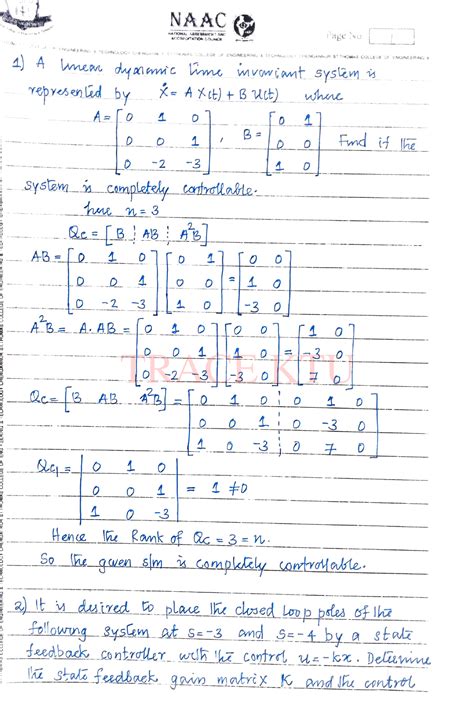 NAAC
NATIONAL ASSESSMENT AND
ACCREDITATION COUNCIL
Page No. 1
1) A linear dynamic time invariant system is
represented by Ẋ = A X(t) + B U(t) where
A = [0 1 0; 0 0 1; 0 -2 -3], B = [0 1; 0 0; 1 0] Find if the
system is completely controllable.
here n = 3
Qc = [B ⋮ AB ⋮ A²B]
AB = [0 1 0; 0 0 1; 0 -2 -3] [0 1; 0 0; 1 0] = [0 0; 1 0; -3 0]
A²B = A. AB = [0 1 0; 0 0 1; 0 -2 -3] [0 0; 1 0; -3 0] = [1 0; -3 0; 7 0]
TRACE KTU
Qc = [B AB A²B] = [0 1 0 0 1 0; 0 0 1 0 -3 0; 1 0 -3 0 7 0]
Qc1 = |0 1 0; 0 0 1; 1 0 -3| = 1 ≠ 0
Hence the Rank of Qc = 3 = n.
So the given s/m is completely controllable.
2) It is desired to place the closed loop poles of the
following system at s = -3 and s = -4 by a state
feedback controller with the control u = -kx. Determine
the state feedback gain matrix K and the control